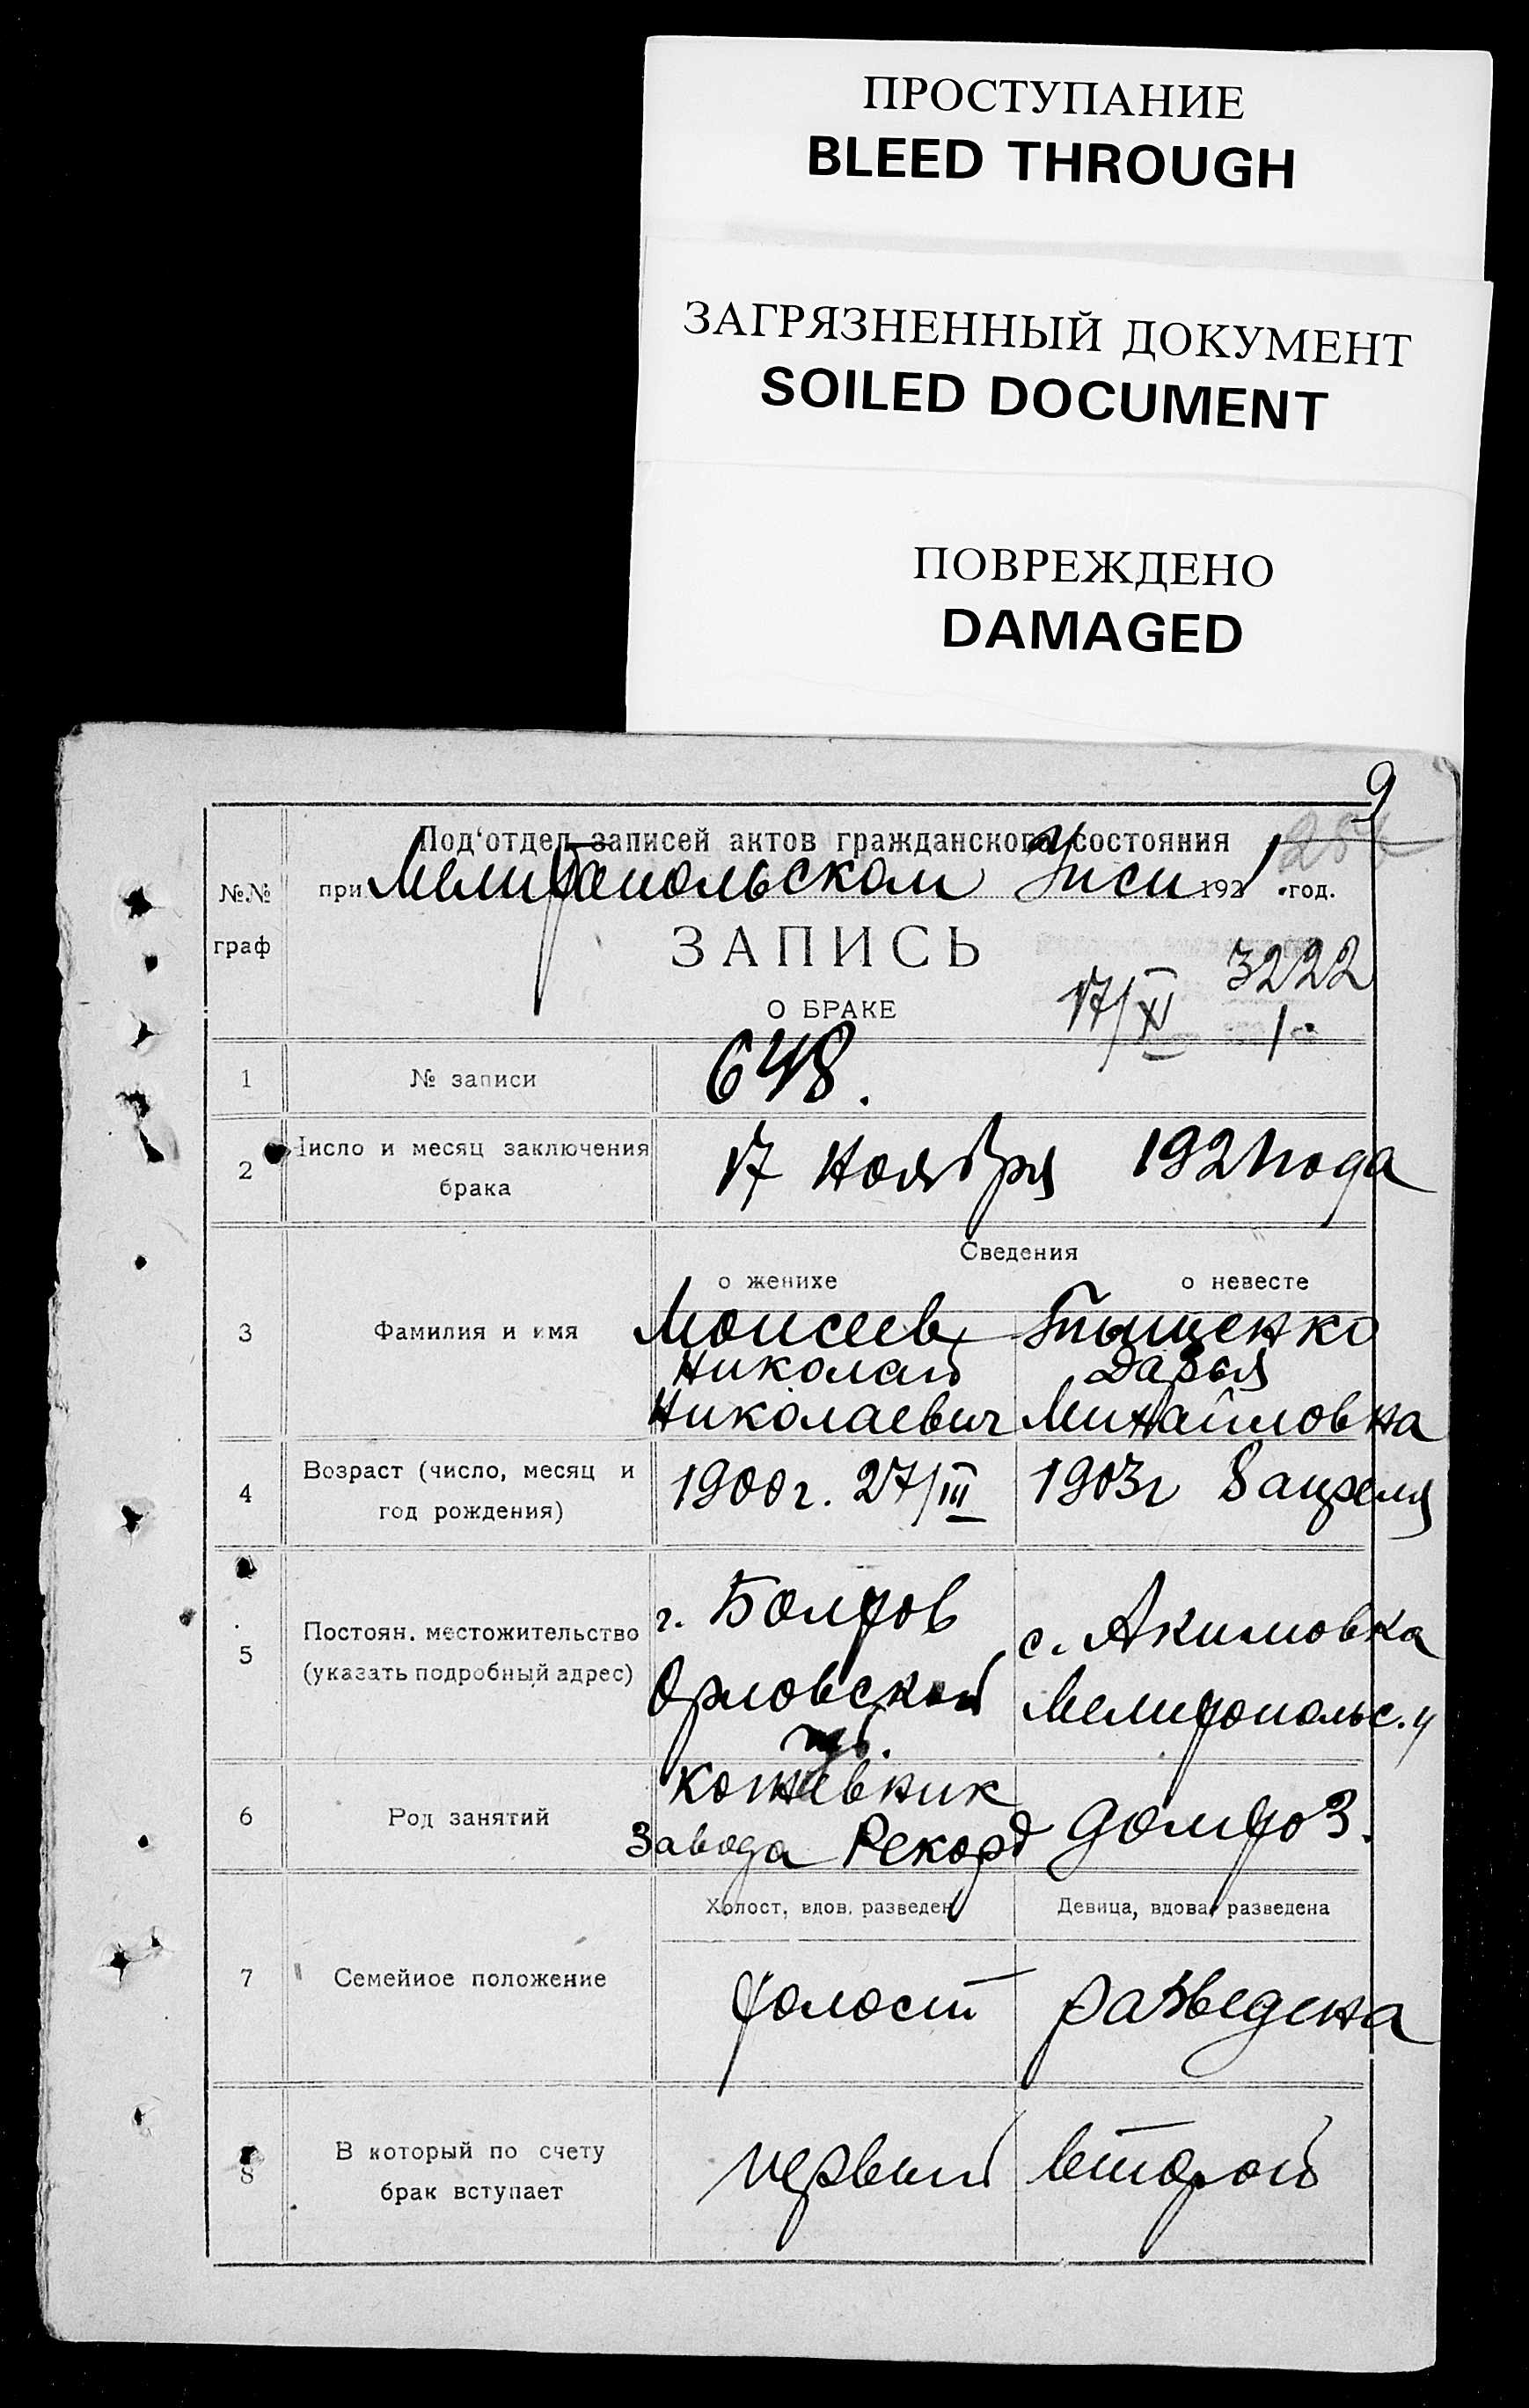 ПРОСТУПАНИЕ
BLEED THROUGH
ЗАГРЯЗНЕННЫЙ ДОКУМЕНТ
SOILED DOCUMENT
ПОВРЕЖДЕНО
DAMAGED
9
Под‘отдел записей актов гражданского состояния
№№ граф
при Мелитопольском Уиси 1921 год.
ЗАПИСЬ
О БРАКЕ
17/XI 3222
1 № записи 648.
2 Число и месяц заключения брака 17 Ноября 1921 года
Сведения
о женихе о невесте
3 Фамилия и имя
Моисеев Тыщенко
Николай Дарья
Николаевич Михайловна
4 Возраст (число, месяц и год рождения) 1900 г. 27/III 1903 г 8 апреля
5 Постоян. местожительство (указать подробный адрес)
г. Болхов с. Акимовка
Орловской Мелитопольс. у
губ.
6 Род занятий
кожевник
завода Рекорд домхоз.
Холост, вдов, разведен Девица, вдова, разведена
7 Семейное положение холост разведена
8 В который по счету брак вступает первый второй